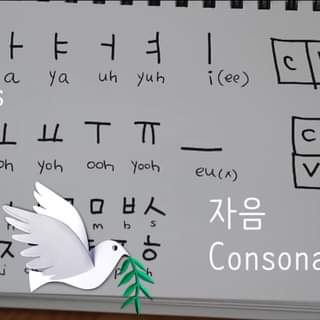 ㅏ ㅑ ㅓ ㅕ ㅣ
a ya uh yuh i(ee)
ㅗ ㅛ ㅜ ㅠ ㅡ
oh yoh ooh yooh eu(x)
ㅁ ㅂ ㅅ
m b s
ㅎ
h
C
C
V
자음
Consona